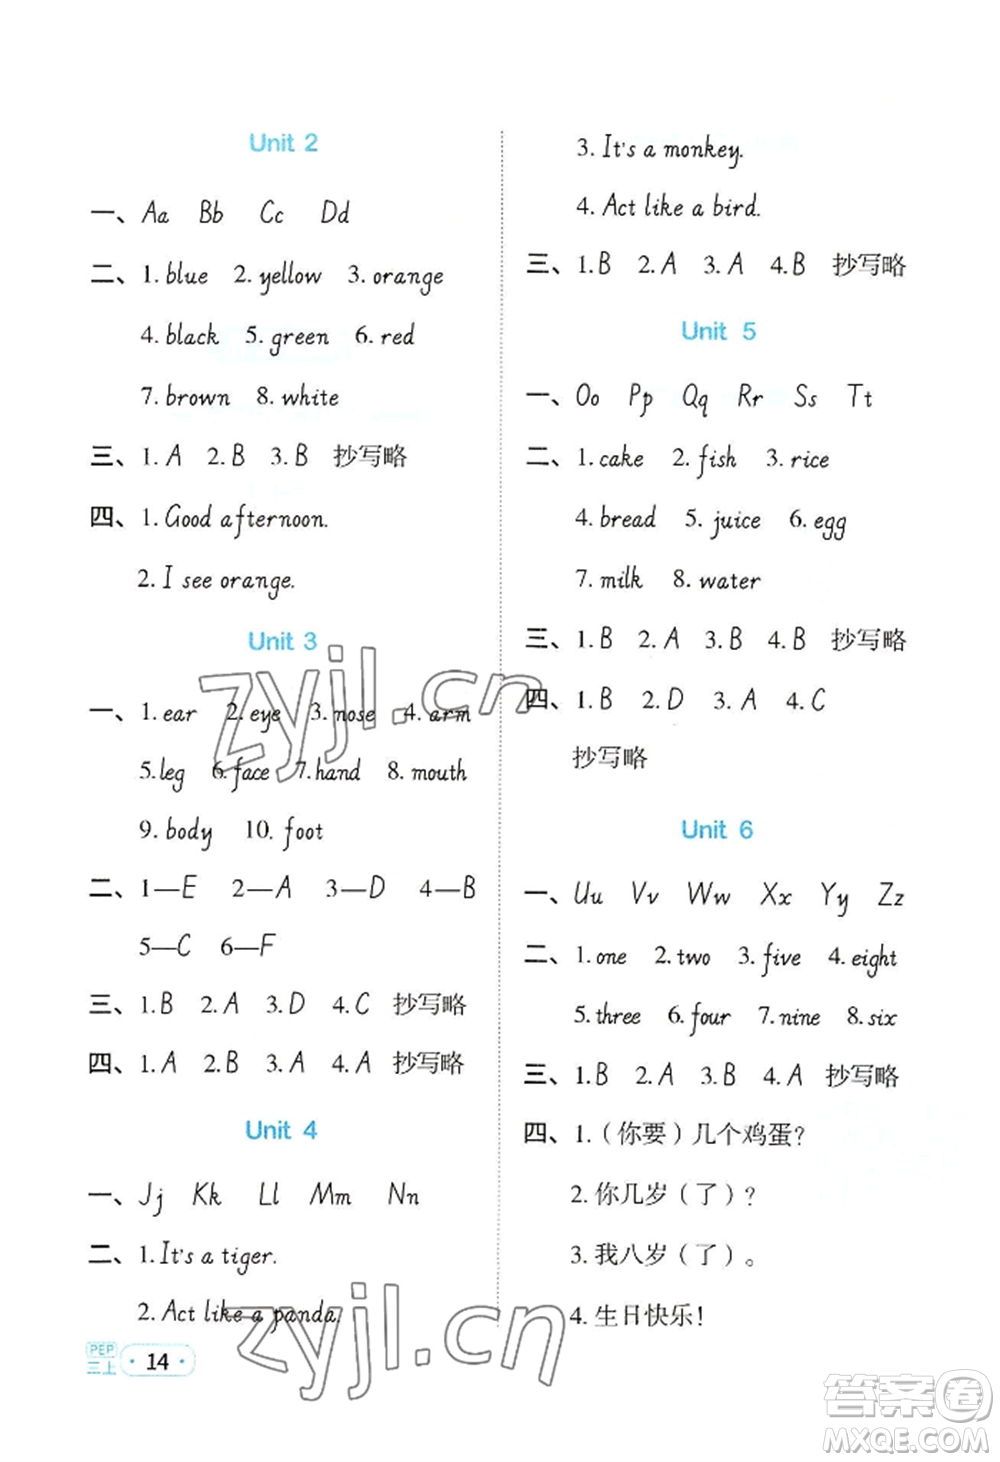 Unit 2
一、Aa Bb Cc Dd
二、1. blue 2. yellow 3. orange
4. black 5. green 6. red
7. brown 8. white
三、1. A 2. B 3. B 抄写略
四、1. Good afternoon.
2. I see orange.
Unit 3
一、1. ear 2. eye 3. nose 4. arm
5. leg 6. face 7. hand 8. mouth
9. body 10. foot
二、1—E 2—A 3—D 4—B
5—C 6—F
三、1. B 2. A 3. D 4. C 抄写略
四、1. A 2. B 3. A 4. A 抄写略
Unit 4
一、Jj Kk Ll Mm Nn
二、1. It's a tiger.
2. Act like a panda.
3. It's a monkey.
4. Act like a bird.
三、1. B 2. A 3. A 4. B 抄写略
Unit 5
一、Oo Pp Qq Rr Ss Tt
二、1. cake 2. fish 3. rice
4. bread 5. juice 6. egg
7. milk 8. water
三、1. B 2. A 3. B 4. B 抄写略
四、1. B 2. D 3. A 4. C
抄写略
Unit 6
一、Uu Vv Ww Xx Yy Zz
二、1. one 2. two 3. five 4. eight
5. three 6. four 7. nine 8. six
三、1. B 2. A 3. B 4. A 抄写略
四、1.（你要）几个鸡蛋？
2. 你几岁（了）？
3. 我八岁（了）。
4. 生日快乐！
PEP
三上
· 14 ·
zyjl.cn
zyjl.cn
答案卷
MXQE.COM